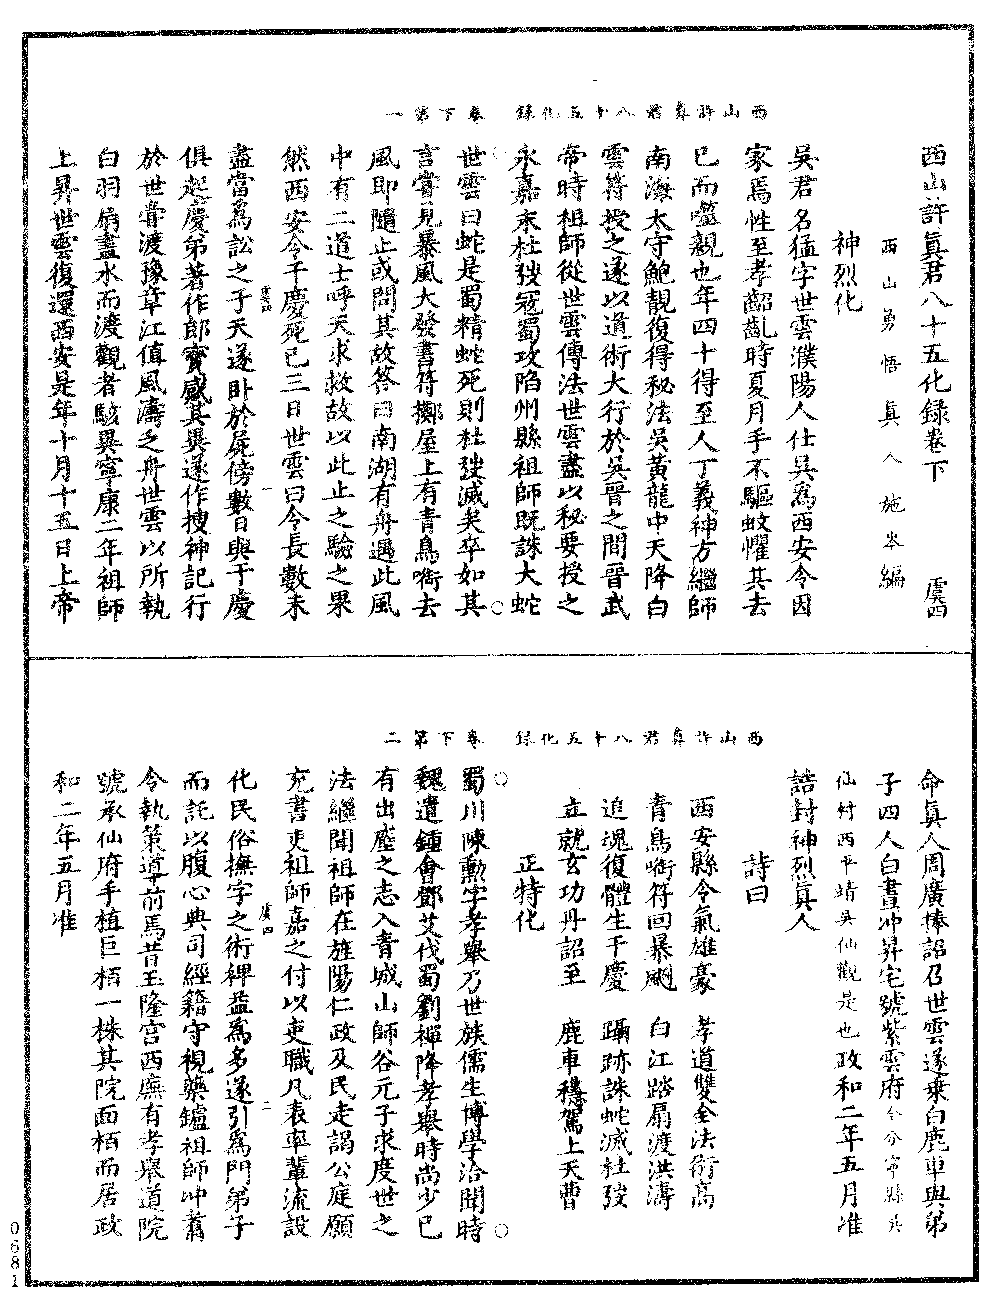 西山許真君八十五化錄 卷下第一
西山許眞君八十五化録卷下 虞四
西山勇悟真人施岑編
神烈化
吳君名猛字世雲濮陽人仕吳爲西安令因
家焉性至孝齠齓時夏月手不驅蚊懼其去
己而噬親也年四十得至人丁義神方繼師
南海太守鮑靚復得秘法吳黄龍中天降白
雲符授之遂以道術大行於吳晉之間晉武
帝時祖師從世雲傳法世雲盡以秘要授之
永嘉末杜弢寇蜀攻陷州縣祖師既誅大蛇
世雲曰蛇是蜀精蛇死則杜弢滅矣卒如其
言嘗見暴風大發書符擲屋上有青鳥啣去
風即隨止或問其故答曰南湖有舟遇此風
中有二道士呼天求救故以此止之驗之果
然西安令干慶死已三日世雲曰令長數未
盡當爲訟之于天遂卧於屍傍數日與干慶
俱起慶弟著作郎寶感其異遂作搜神記行
於世嘗渡豫章江值風濤乏舟世雲以所執
白羽扇畫水而渡觀者駭異寧康二年祖師
上昇世雲復還西安是年十月十五日上帝
西山許真君八十五化錄 卷下第二
命真人周廣捧詔召世雲遂乘白鹿車與弟
子四人白晝冲昇宅號紫雲府今分寧縣吳
仙村西平靖吳仙觀是也政和二年五月准
誥封神烈真人
詩曰
西安縣令氣雄豪 孝道雙全法術高
青鳥啣符回暴颶 白江踏扇渡洪濤
追魂復體生干慶 躡跡誅蛇滅杜弢
立就玄功丹詔至 鹿車穩駕上天曹
正特化
蜀川陳勳字孝舉乃世族儒生博學洽聞時
魏遣鍾會鄧艾伐蜀劉禪降孝舉時尚少已
有出塵之志入青城山師谷元子求度世之
法繼聞祖師在旌陽仁政及民走謁公庭願
充書吏祖師嘉之付以吏職凡表率輩流設
化民俗撫字之術裨益爲多遂引爲門弟子
而託以腹心典司經籍守視藥鑪祖師冲舉
令執策導前馬昔玉隆宫西廡有孝舉道院
號承仙府手植巨栢一株其院面栢而居政
和二年五月准
虞四
二
0681